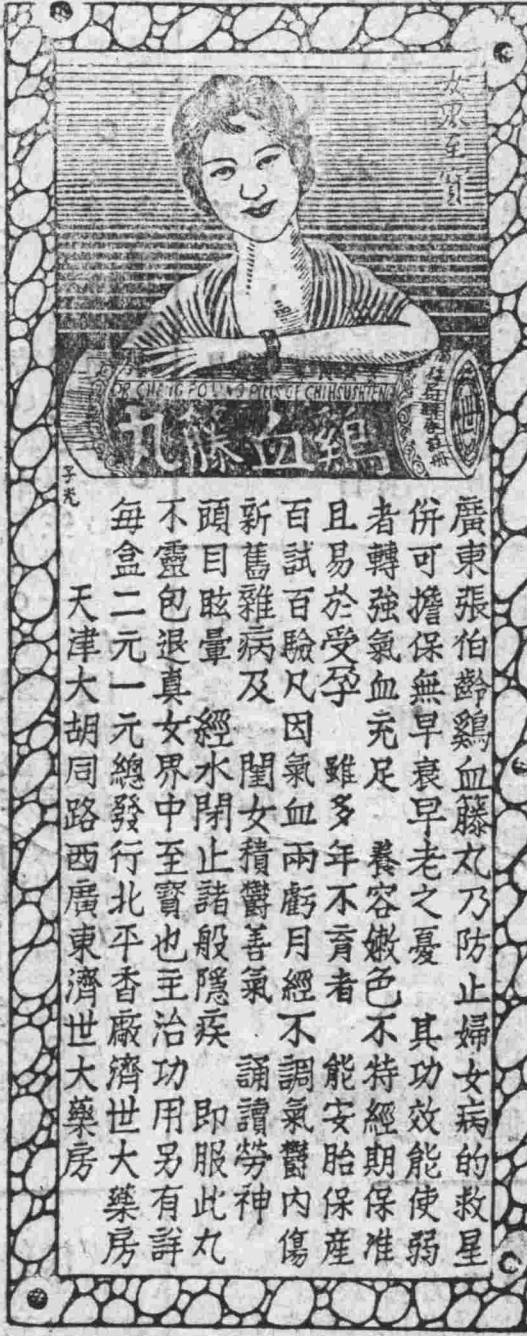 女界至寶
DR CHANG PO LING PILLS OF CHIHSUEHTENG
鷄血籐丸
子光
廣東張伯齡鷄血籐丸乃防止婦女病的救星
併可擔保無早衰早老之憂 其功效能使弱
者轉強氣血充足 養容嫩色不特經期保准
且易於受孕 雖多年不育者 能安胎保産
百試百驗凡因氣血兩虧月經不調氣欝內傷
新舊雜病及 閨女積欝善氣 誦讀勞神
頭目眩暈 經水閉止諸般隱疾 即服此丸
不靈包退真女界中至寳也主治功用另有詳
每盒二元一元總發行北平香廠濟世大藥房
天津大胡同路西廣東濟世大藥房